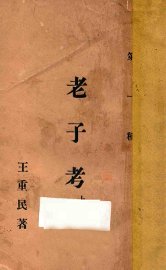 第一種
老子考
王重民著